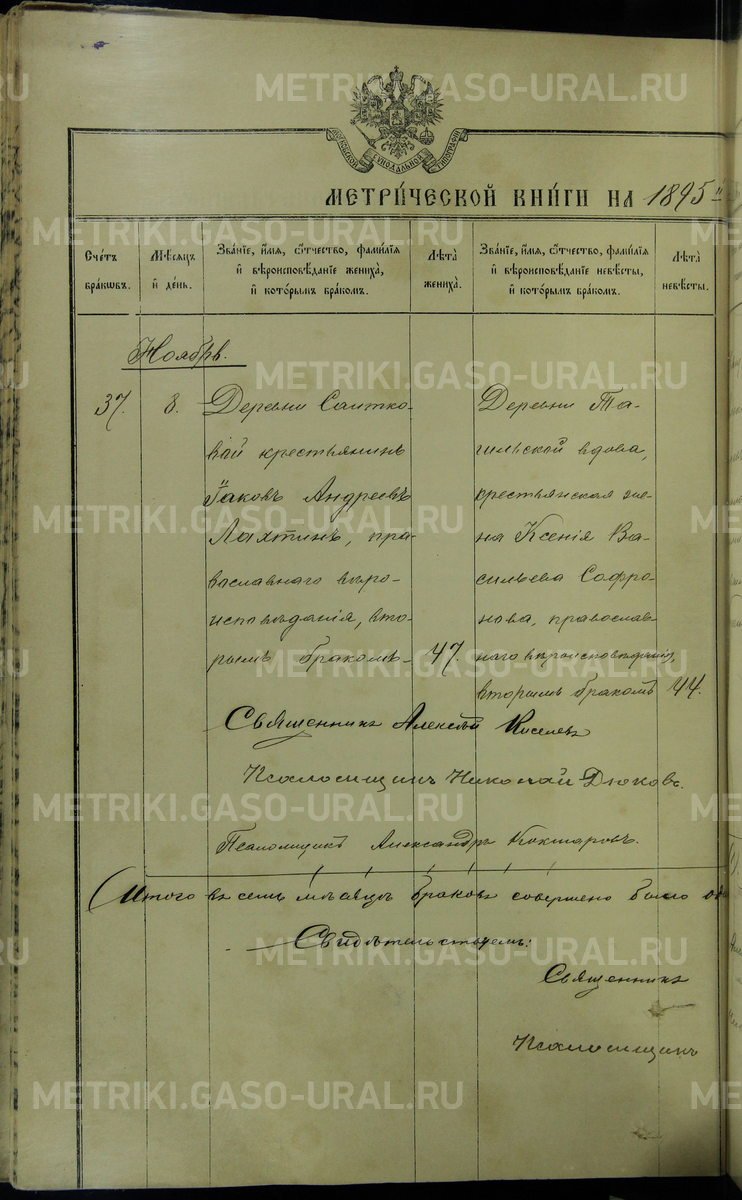 METRIKI.GASO-URAL.RU
МОСКОВСКОЙ СѴНОДАЛЬНОЙ ТИПОГРАФІИ
МЕТРИ́ЧЕСКОЙ КНИ́ГИ НА 1895й
Сче́тъ бра́ковъ.
Мѣ́сяцъ и҆ де́нь.
Зва́нїе, и҆́мя, ѻ҆́тчество, фами́лїя и҆ вѣроисповѣ́данїе жениха̀, и҆ кото́рымъ бра́комъ.
Лѣ́та жениха̀.
Зва́нїе, и҆́мя, ѻ҆́тчество, фами́лїя и҆ вѣроисповѣ́данїе невѣ́сты, и҆ кото́рымъ бра́комъ.
Лѣ́та невѣ́сты.
Ноябрь.
37. 8.
Деревни Саитко-
вай крестьянинъ
Іаковъ Андреевъ
Лахтинъ, пра-
вославнаго вѣро-
исповѣданія, вто-
рымъ бракомъ 47.
Деревни Та-
гильской вдова,
крестьянская же-
на Ксенія Ва-
сильева Софро-
нова, православ-
наго вѣроисповѣданія,
вторымъ бракомъ 44.
Священникъ Алексѣй Киселевъ
Псаломщикъ Николай Дюковъ.
Псаломщикъ Александръ Кокшаровъ.
Итого въ семъ мѣсяцѣ браковъ совершено было
Свидѣтельствуемъ:
Священникъ
Псаломщикъ